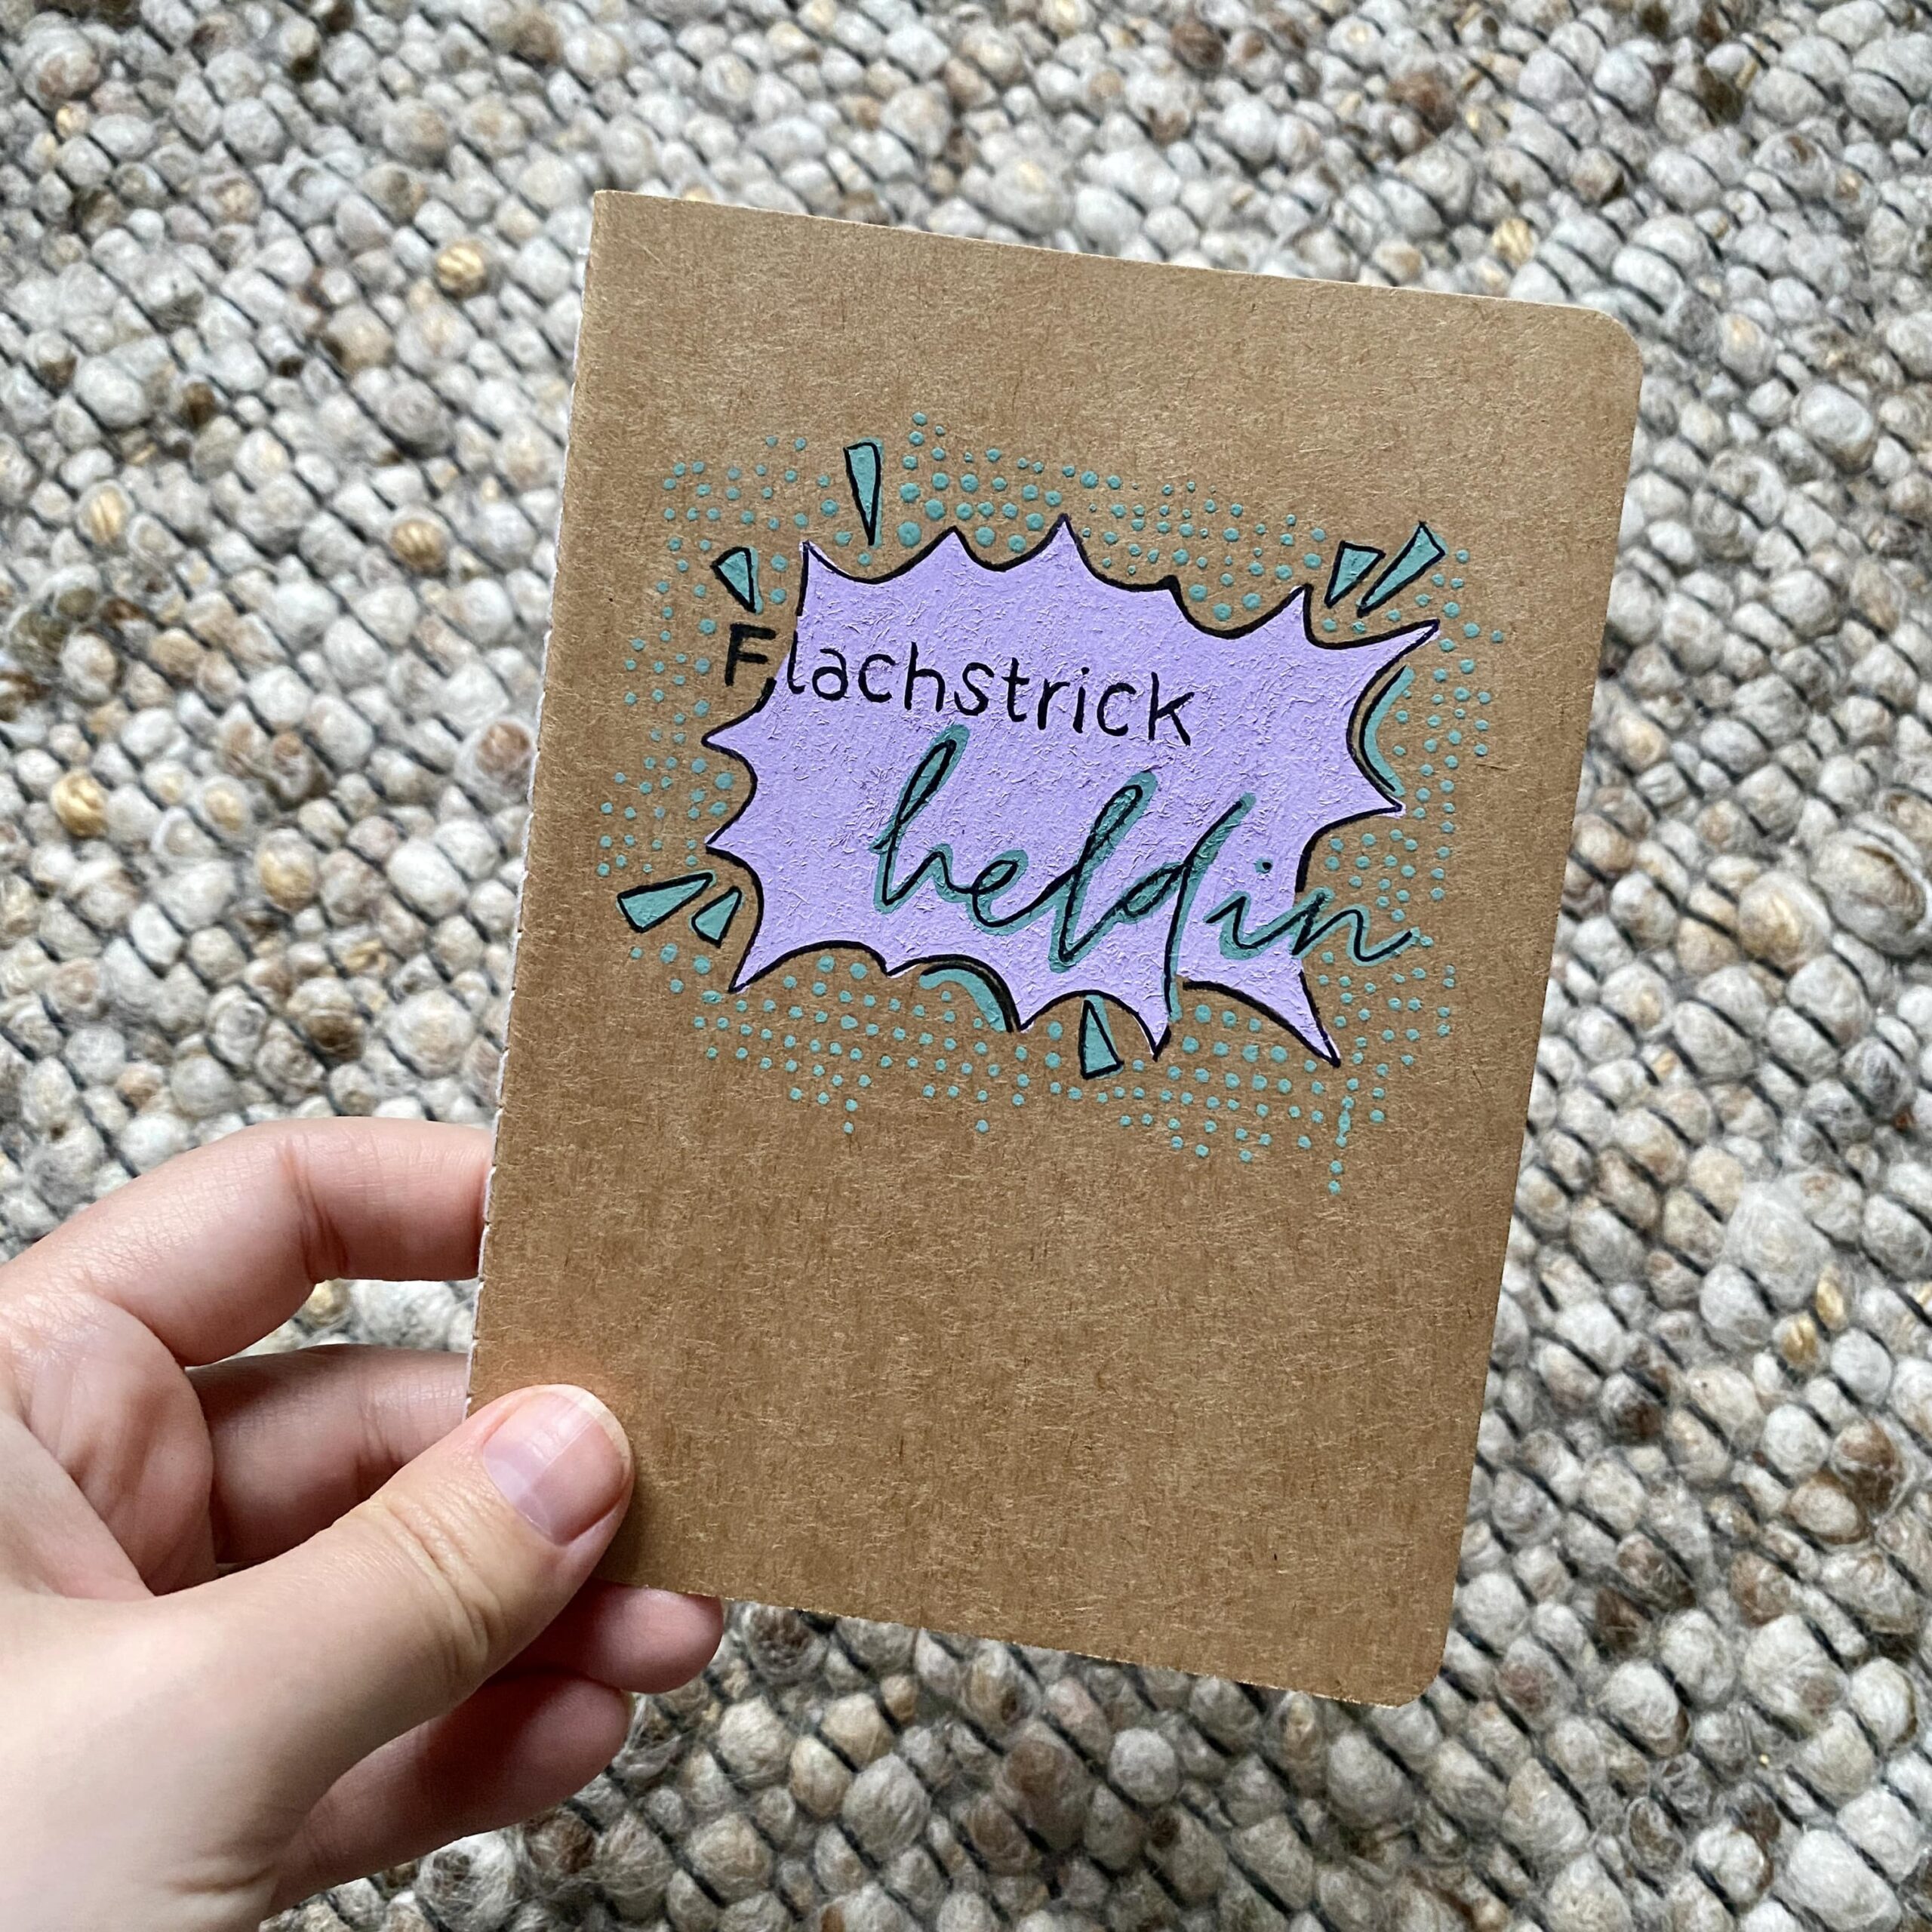 Flachstrick
heldin